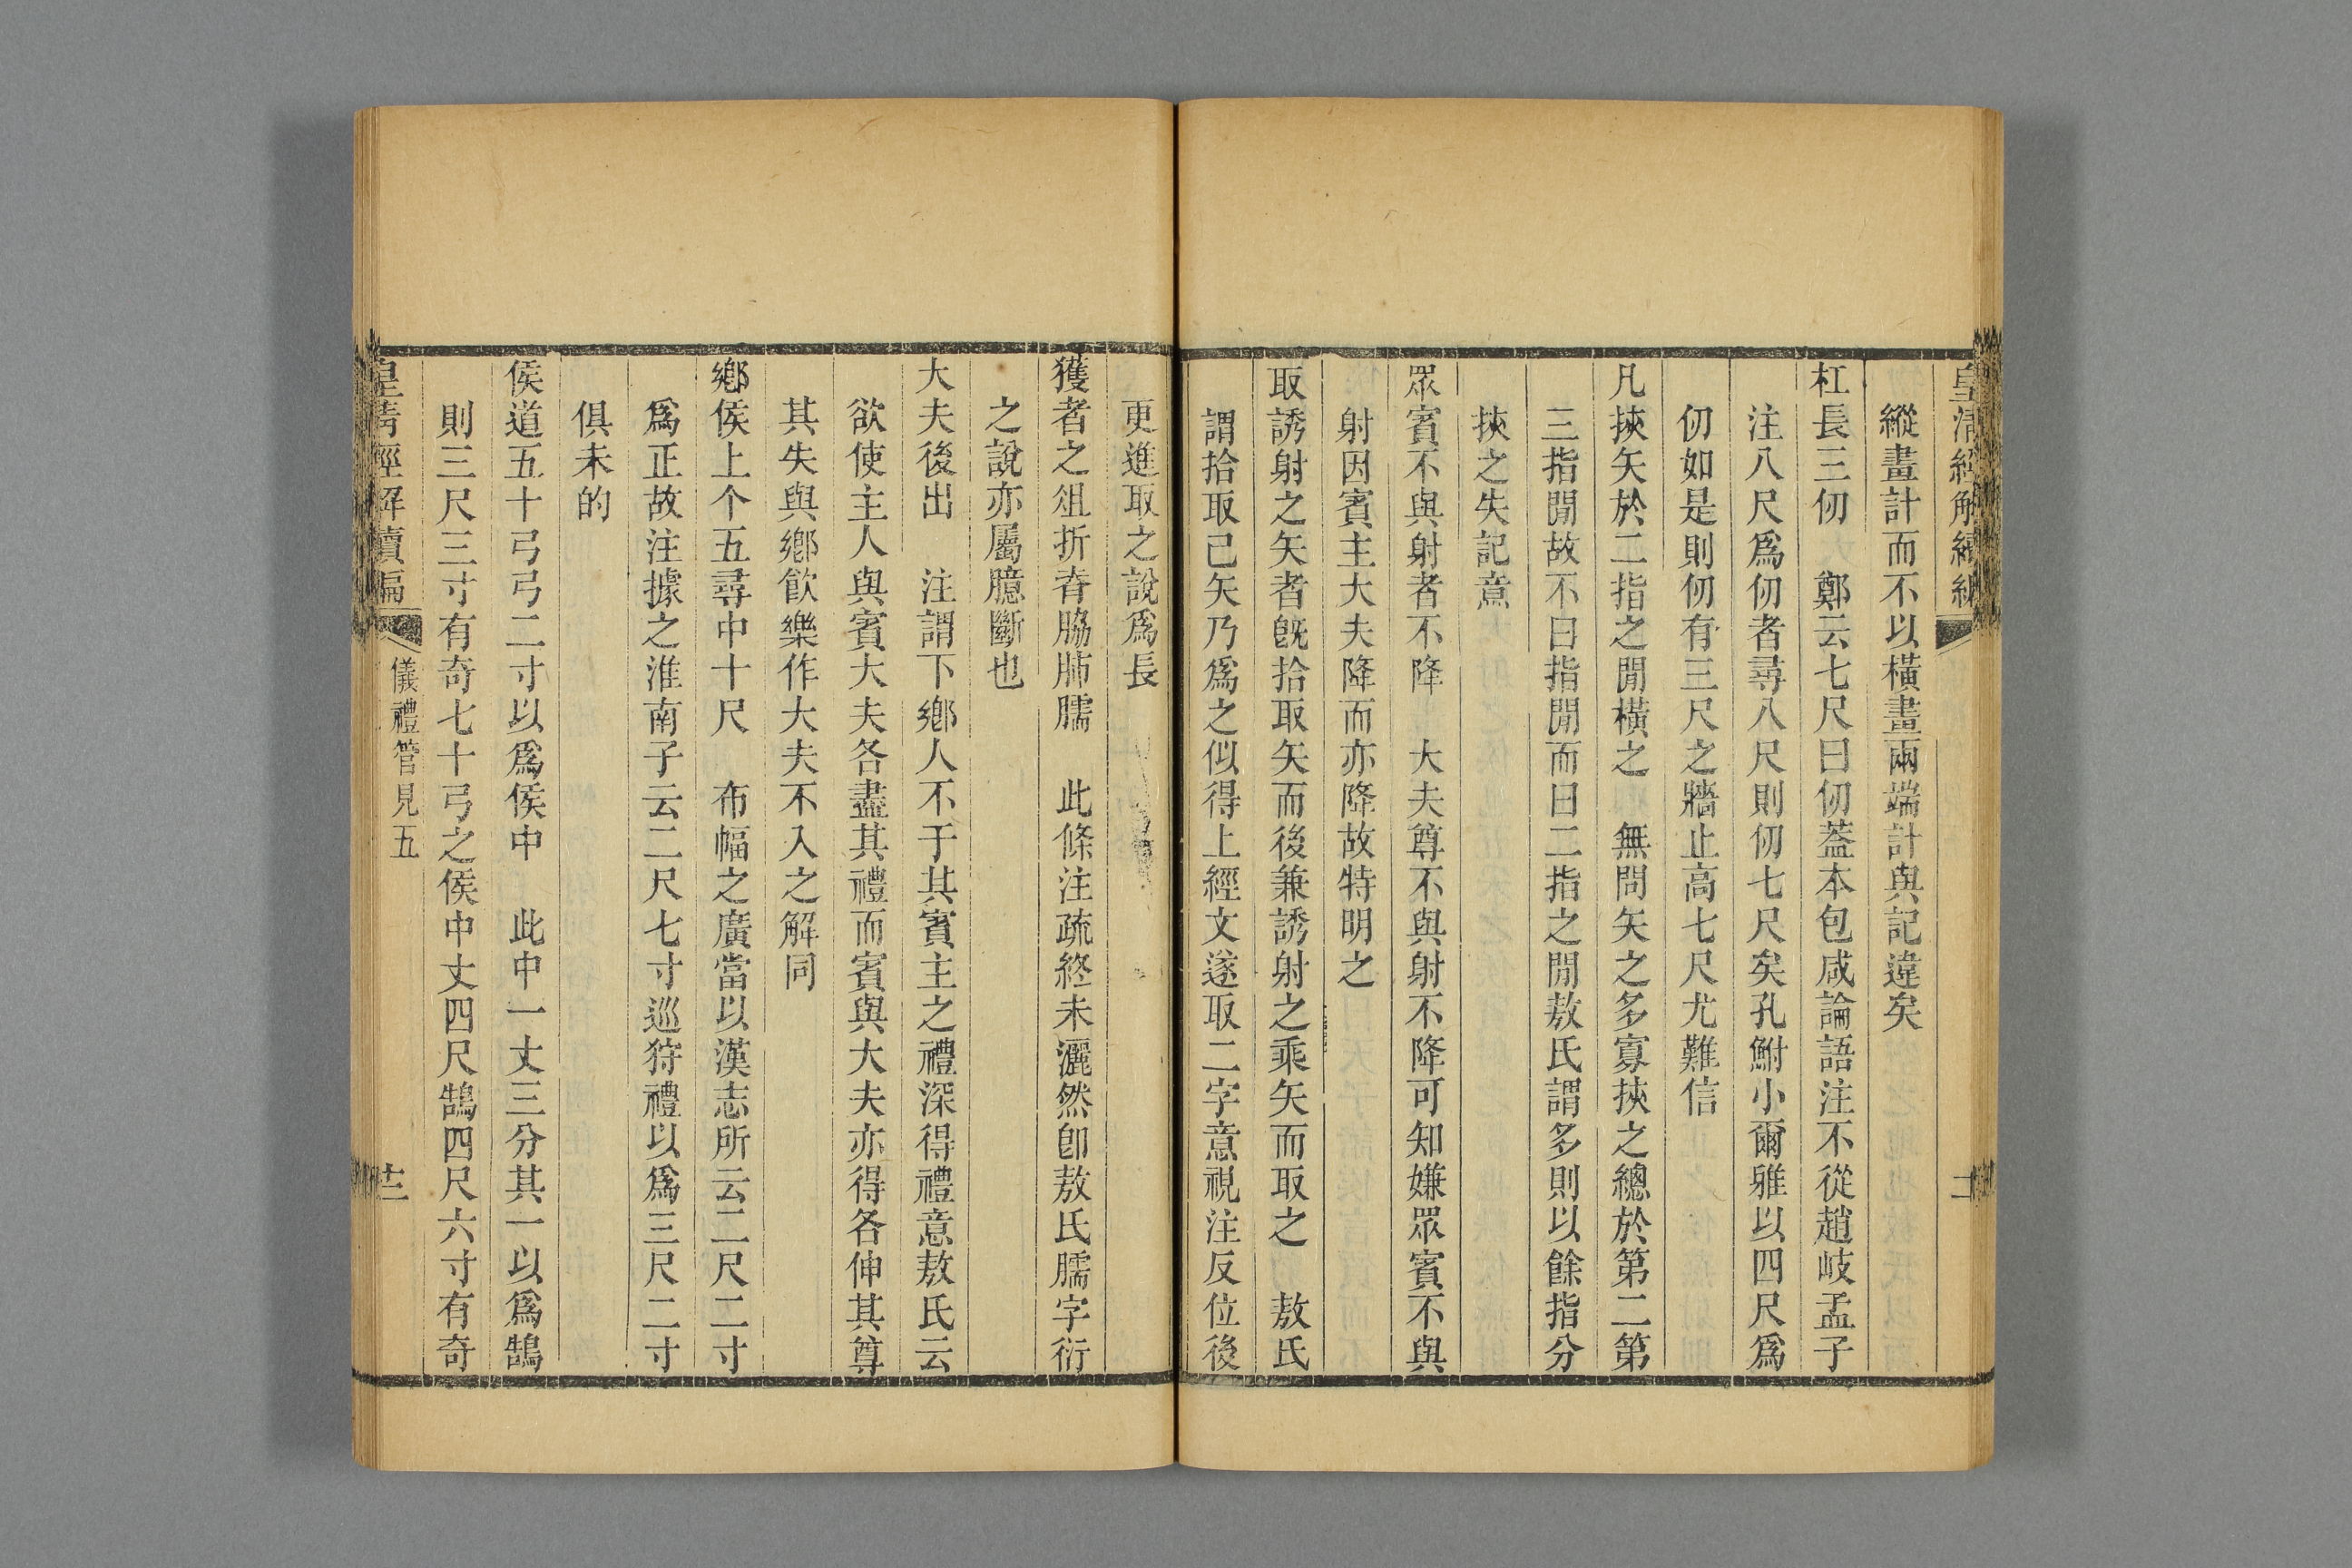 皇清經解續編
縱畫計而不以橫畫兩端計與記違矣
杠長三仞　鄭云七尺曰仞蓋本包咸論語注不從趙岐孟子
注八尺爲仞者尋八尺則仞七尺矣孔鮒小爾雅以四尺爲
仞如是則仞有三尺之牆止高七尺尤難信
凡挾矢於二指之閒橫之　無問矢之多寡挾之總於第二第
三指閒故不曰指閒而曰二指之閒敖氏謂多則以餘指分
挾之失記意
眾賓不與射者不降　大夫尊不與射不降可知嫌眾賓不與
射因賓主大夫降而亦降故特明之
取誘射之矢者旣拾取矢而後兼誘射之乘矢而取之　敖氏
謂拾取己矢乃爲之似得上經文遂取二字意視注反位後
更進取之說爲長
獲者之俎折脊脇肺臑　此條注疏終未灑然卽敖氏臑字衍
之說亦屬臆斷也
大夫後出　注謂下鄕人不于其賓主之禮深得禮意敖氏云
欲使主人與賓大夫各盡其禮而賓與大夫亦得各伸其尊
其失與鄕飮樂作大夫不入之解同
鄕侯上个五尋中十尺　布幅之廣當以漢志所云二尺二寸
爲正故注據之淮南子云二尺七寸巡狩禮以爲三尺二寸
俱未的
侯道五十弓弓二寸以爲侯中　此中一丈三分其一以爲鵠
則三尺三寸有奇七十弓之侯中丈四尺鵠四尺六寸有奇
皇清經解續編　儀禮管見五